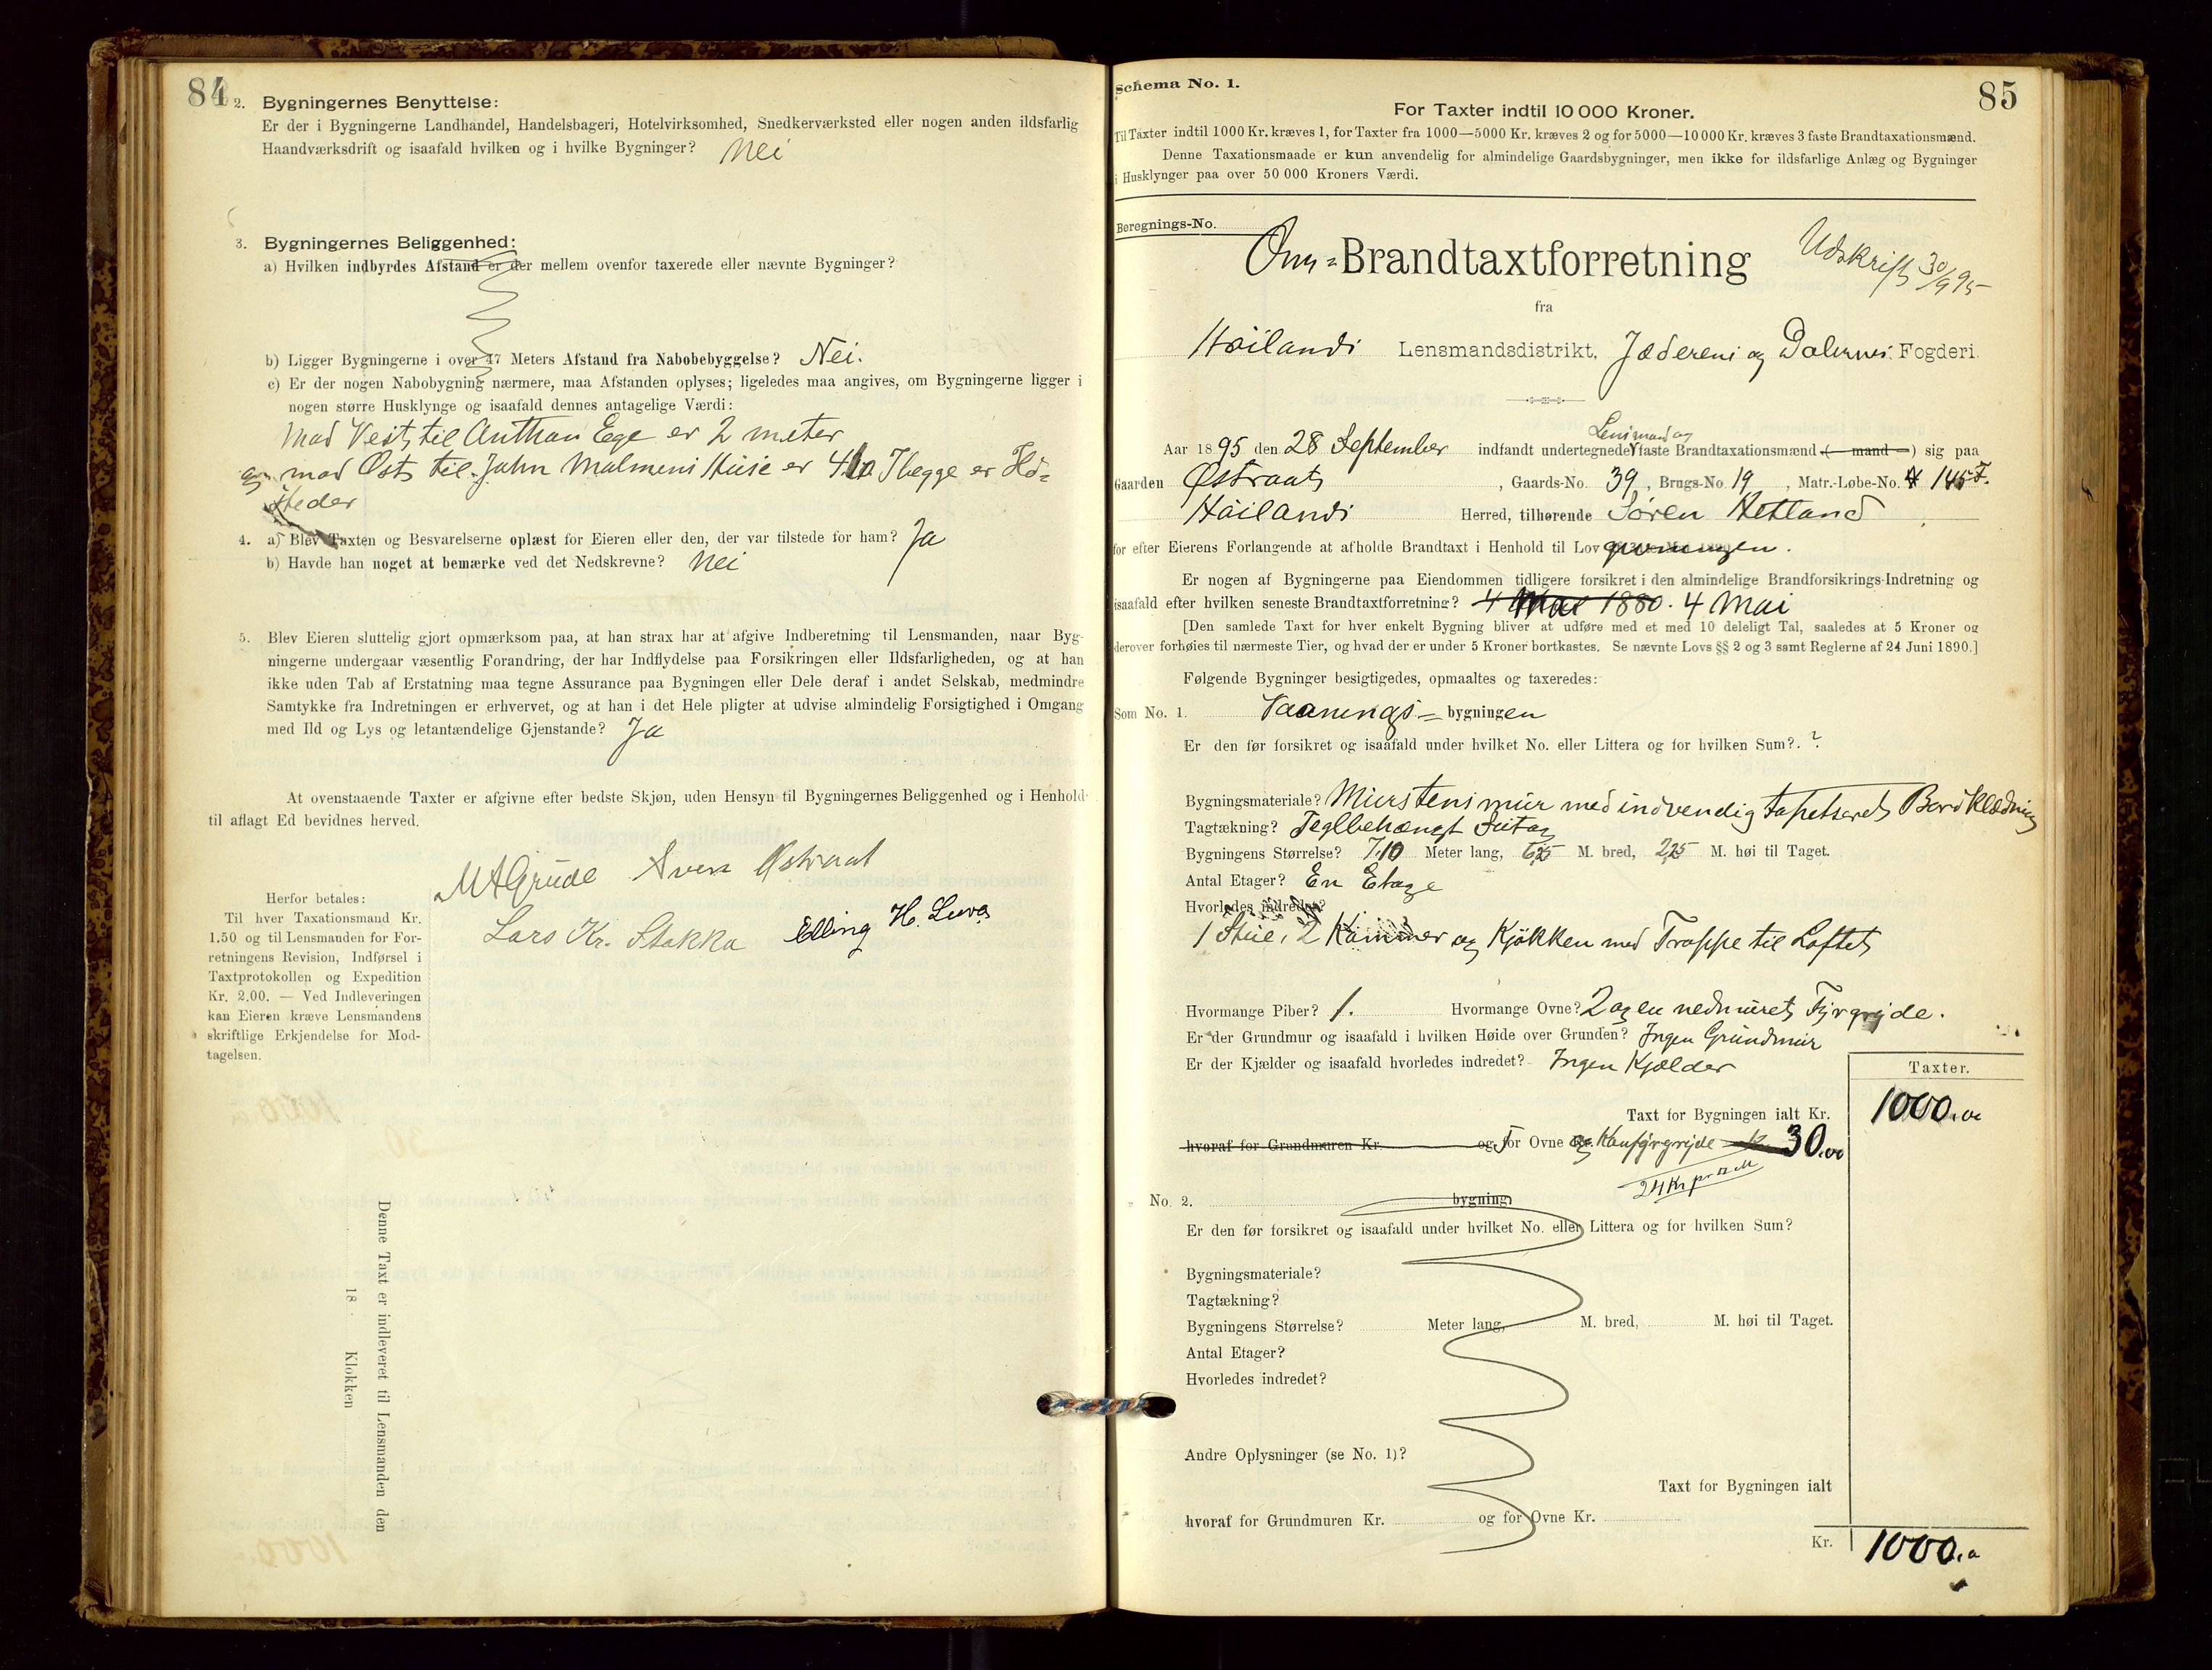 84
2. Bygningernes Benyttelse:
Er der i Bygningerne Landhandel, Handelsbageri, Hotelvirksomhed, Snedkerværksted eller nogen anden ildsfarlig
Haandværksdrift og isaafald hvilken og i hvilke Bygninger? Nei
3. Bygningernes Beliggenhed:
a) Hvilken indbyrdes Afstand er der mellem ovenfor taxerede eller nævnte Bygninger?
b) Ligger Bygningerne i over 47 Meters Afstand fra Nabobebyggelse? Nei.
c) Er der nogen Nabobygning nærmere, maa Afstanden oplyses; ligeledes maa angives, om Bygningerne ligger i
nogen større Husklynge og isaafald dennes antagelige Værdi:
Mod Vest, til Anthon Ege er 2 meter
og mod Øst til John Malmens Huse er Begge er Ild=
steder
4. a) Blev Taxten og Besvarelserne oplæst for Eieren eller den, der var tilstede for ham? Ja
b) Havde han noget at bemærke ved det Nedskrevne? Nei
5. Blev Eieren sluttelig gjort opmærksom paa, at han strax har at afgive Indberetning til Lensmanden, naar Byg-
ningerne undergaar væsentlig Forandring, der har Indflydelse paa Forsikringen eller Ildsfarligheden, og at han
ikke uden Tab af Erstatning maa tegne Assurance paa Bygningen eller Dele deraf i andet Selskab, medmindre
Samtykke fra Indretningen er erhvervet, og at han i det Hele pligter at udvise almindelig Forsigtighed i Omgang
med Ild og Lys og letantændelige Gjenstande? Ja
At ovenstaaende Taxter er afgivne efter bedste Skjøn, uden Hensyn til Bygningernes Beliggenhed og i Henhold
til aflagt Ed bevidnes herved.
M A Grude Sven Østraat
Lars Kr. Stokka Elling H. Lura
Herfor betales:
Til hver Taxationsmand Kr.
1.50 og til Lensmanden for For-
retningens Revision, Indførsel i
Taxtprotokollen og Expedition
Kr. 2.00. — Ved Indleveringen
kan Eieren kræve Lensmandens
skriftlige Erkjendelse for Mod-
tagelsen.
Denne Taxt er indleveret til Lensmanden den
18 Klokken
Schema No. 1.
85
For Taxter indtil 10 000 Kroner.
Til Taxter indtil 1000 Kr. kræves 1, for Taxter fra 1000—5000 Kr. kræves 2 og for 5000—10 000 Kr. kræves 3 faste Brandtaxationsmænd.
Denne Taxationsmaade er kun anvendelig for almindelige Gaardsbygninger, men ikke for ildsfarlige Anlæg og Bygninger
i Husklynger paa over 50 000 Kroners Værdi.
Beregnings-No.
Om=Brandtaxtforretning
Udskrift 30/9 95
fra
Høilands Lensmandsdistrikt, Jæderens og Dalernes Fogderi.
Lensmand og
Aar 1895 den 28 September indfandt undertegnede faste Brandtaxationsmænd (— mand —) sig paa
Gaarden Østraat, Gaards-No. 39, Brugs-No. 19, Matr.-Løbe-No. 145 F.
Høilands Herred, tilhørende Søren Hetland
for efter Eierens Forlangende at afholde Brandtaxt i Henhold til Lovgivningen.
Er nogen af Bygningerne paa Eiendommen tidligere forsikret i den almindelige Brandforsikrings-Indretning og
isaafald efter hvilken seneste Brandtaxtforretning? 4 Mai 1880. 4 Mai
[Den samlede Taxt for hver enkelt Bygning bliver at udføre med et med 10 deleligt Tal, saaledes at 5 Kroner og
derover forhøies til nærmeste Tier, og hvad der er under 5 Kroner bortkastes. Se nævnte Lovs §§ 2 og 3 samt Reglerne af 24 Juni 1890.]
Følgende Bygninger besigtigedes, opmaaltes og taxeredes:
Som No. 1. Vaanings=bygningen
Er den før forsikret og isaafald under hvilket No. eller Littera og for hvilken Sum? ?
Bygningsmateriale? Murstensmur med indvendig tapetseret Bordklædning
Tagtækning? Teglbehængt Sutag
Bygningens Størrelse? 7,10 Meter lang, 6,25 M. bred, 2,25 M. høi til Taget.
Antal Etager? En Etage
Hvorledes indredet?
1 Stue, 2 Kammer og Kjøkken med Trappe til Loftet
Hvormange Piber? 1. Hvormange Ovne? 2 og en nedmuret Fyrgryde.
Er der Grundmur og isaafald i hvilken Høide over Grunden? Ingen Grundmur
Er der Kjælder og isaafald hvorledes indredet? Ingen Kjælder
Taxter.
Taxt for Bygningen ialt Kr. 1000,00
hvoraf for Grundmuren Kr. og for Ovne og Komfyrgryde 30,00
24 Kr pr
No. 2. bygning.
Er den før forsikret og isaafald under hvilket No. eller Littera og for hvilken Sum?
Bygningsmateriale?
Tagtækning?
Bygningens Størrelse? Meter lang, M. bred, M. høi til Taget.
Antal Etager?
Hvorledes indredet?
Andre Oplysninger (se No. 1)?
Taxt for Bygningen ialt
hvoraf for Grundmuren Kr. og for Ovne Kr.
Kr. 1000,